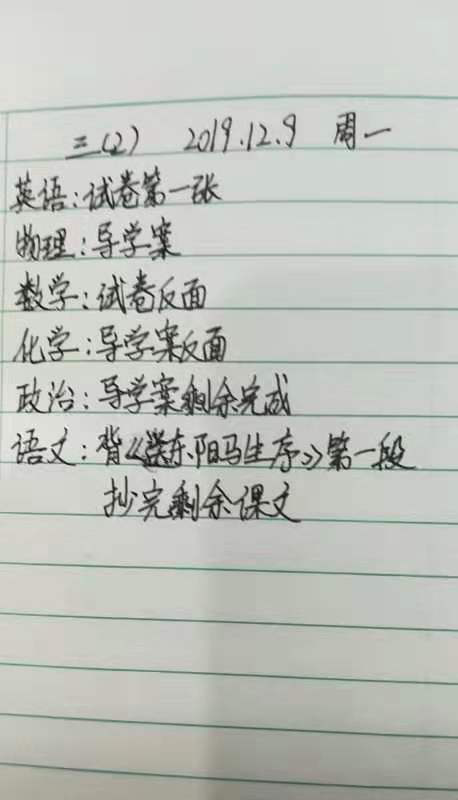 三(2) 2019.12.9 周一
英语:试卷第一张
物理:导学案
数学:试卷反面
化学:导学案反面
政治:导学案剩余完成
语文:背《送东阳马生序》第一段
抄完剩余课文